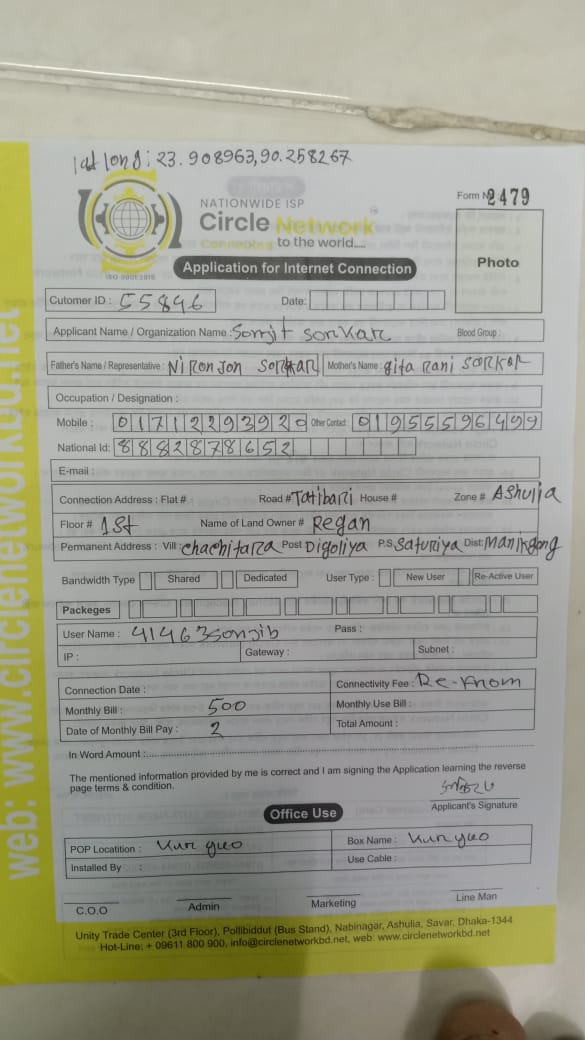 lat long: 23.908963,90.258267
Form № 2479
NATIONWIDE ISP
Circle Network
Connecting to the world....
ISO 9001:2015
Photo
Application for Internet Connection
Cutomer ID : 55846 Date:
Applicant Name / Organization Name : Sonjit sonkar Blood Group :
Father's Name / Representative : Nironjon Sorkar Mother's Name : gita Rani Sorkar
Occupation / Designation :
Mobile : 01712293920 Other Contact : 01955596499
National Id: 8882878652
E-mail :
Connection Address : Flat # Road # Tatibari House # Zone # Ashulia
Floor # 1st Name of Land Owner # Regan
Permanent Address : Vill : chachitara Post Digoliya P.S Saturiya Dist: Manikgong
Bandwidth Type Shared Dedicated User Type : New User Re-Active User
Packeges
User Name : 41463sonjib Pass :
IP : Gateway : Subnet :
Connection Date : Connectivity Fee :
Monthly Bill : 500 Monthly Use Bill :
Date of Monthly Bill Pay : 2 Total Amount :
In Word Amount :
The mentioned information provided by me is correct and I am signing the Application learning the reverse
page terms & condition.
Applicant's Signature
Office Use
POP Locatition : Box Name :
Installed By : Use Cable :
C.O.O Admin Marketing Line Man
Unity Trade Center (3rd Floor), Pollibiddut (Bus Stand), Nabinagar, Ashulia, Savar, Dhaka-1344
Hot-Line: + 09611 800 900, info@circlenetworkbd.net, web: www.circlenetworkbd.net
web: www.circlenetworkbd.net